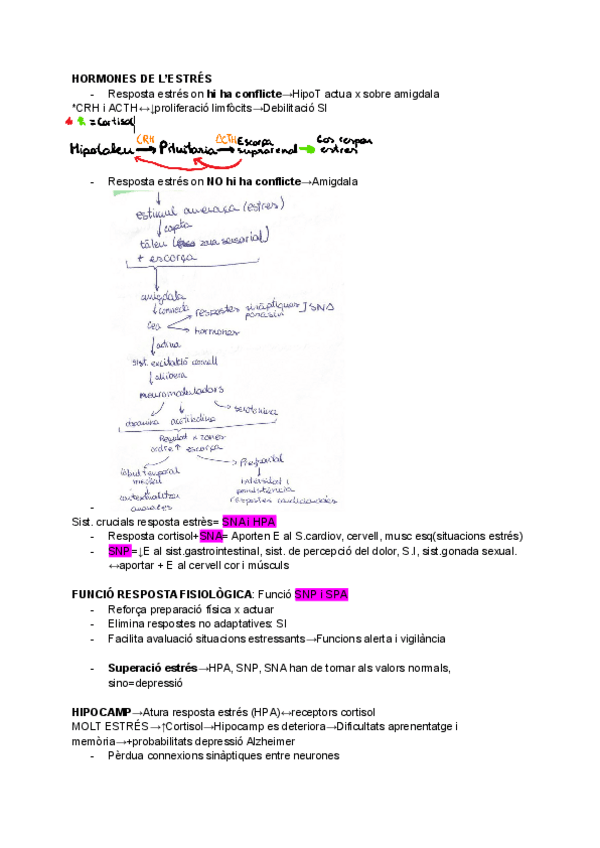 HORMONES DE L'ESTRÉS
- Resposta estrés on hi ha conflicte→HipoT actua x sobre amigdala
*CRH i ACTH↔↓proliferació limfòcits→Debilitació SI
= Cortisol
CRH ACTH
Hipotàleu → Pituitaria → Escorça suprarenal → Cos respon estrés
- Resposta estrés on NO hi ha conflicte→Amigdala
estimul amenaça (estres)
↓ capta
tàleu ( zona sensorial)
+ escorça
amigdala
↓ connecta
Cea → respostes sinàptiques ] SNS
parasim
→ hormones
↓ activa
sist. excitatció cervell
↓ allibera
neuromoduladors
dopamina acetilcolina serotonina
Regulat x zones
ordre ↑ escorça
lòbul temporal
medial
Prefrontal
contextualitzar
intensitat i
persistència
respostes
-
Sist. crucials resposta estrès= SNA i HPA
- Resposta cortisol+SNA= Aporten E al S.cardiov, cervell, musc esq(situacions estrés)
- SNP=↓E al sist.gastrointestinal, sist. de percepció del dolor, S.I, sist.gonada sexual.
↔aportar + E al cervell cor i músculs
FUNCIÓ RESPOSTA FISIOLÒGICA: Funció SNP i SPA
- Reforça preparació física x actuar
- Elimina respostes no adaptatives: SI
- Facilita avaluació situacions estressants→Funcions alerta i vigilància
- Superació estrés→HPA, SNP, SNA han de tornar als valors normals,
sino=depressió
HIPOCAMP→Atura resposta estrés (HPA)↔receptors cortisol
MOLT ESTRÉS →↑Cortisol→Hipocamp es deteriora→Dificultats aprenentatge i
memòria→+probabilitats depressió Alzheimer
- Pèrdua connexions sinàptiques entre neurones